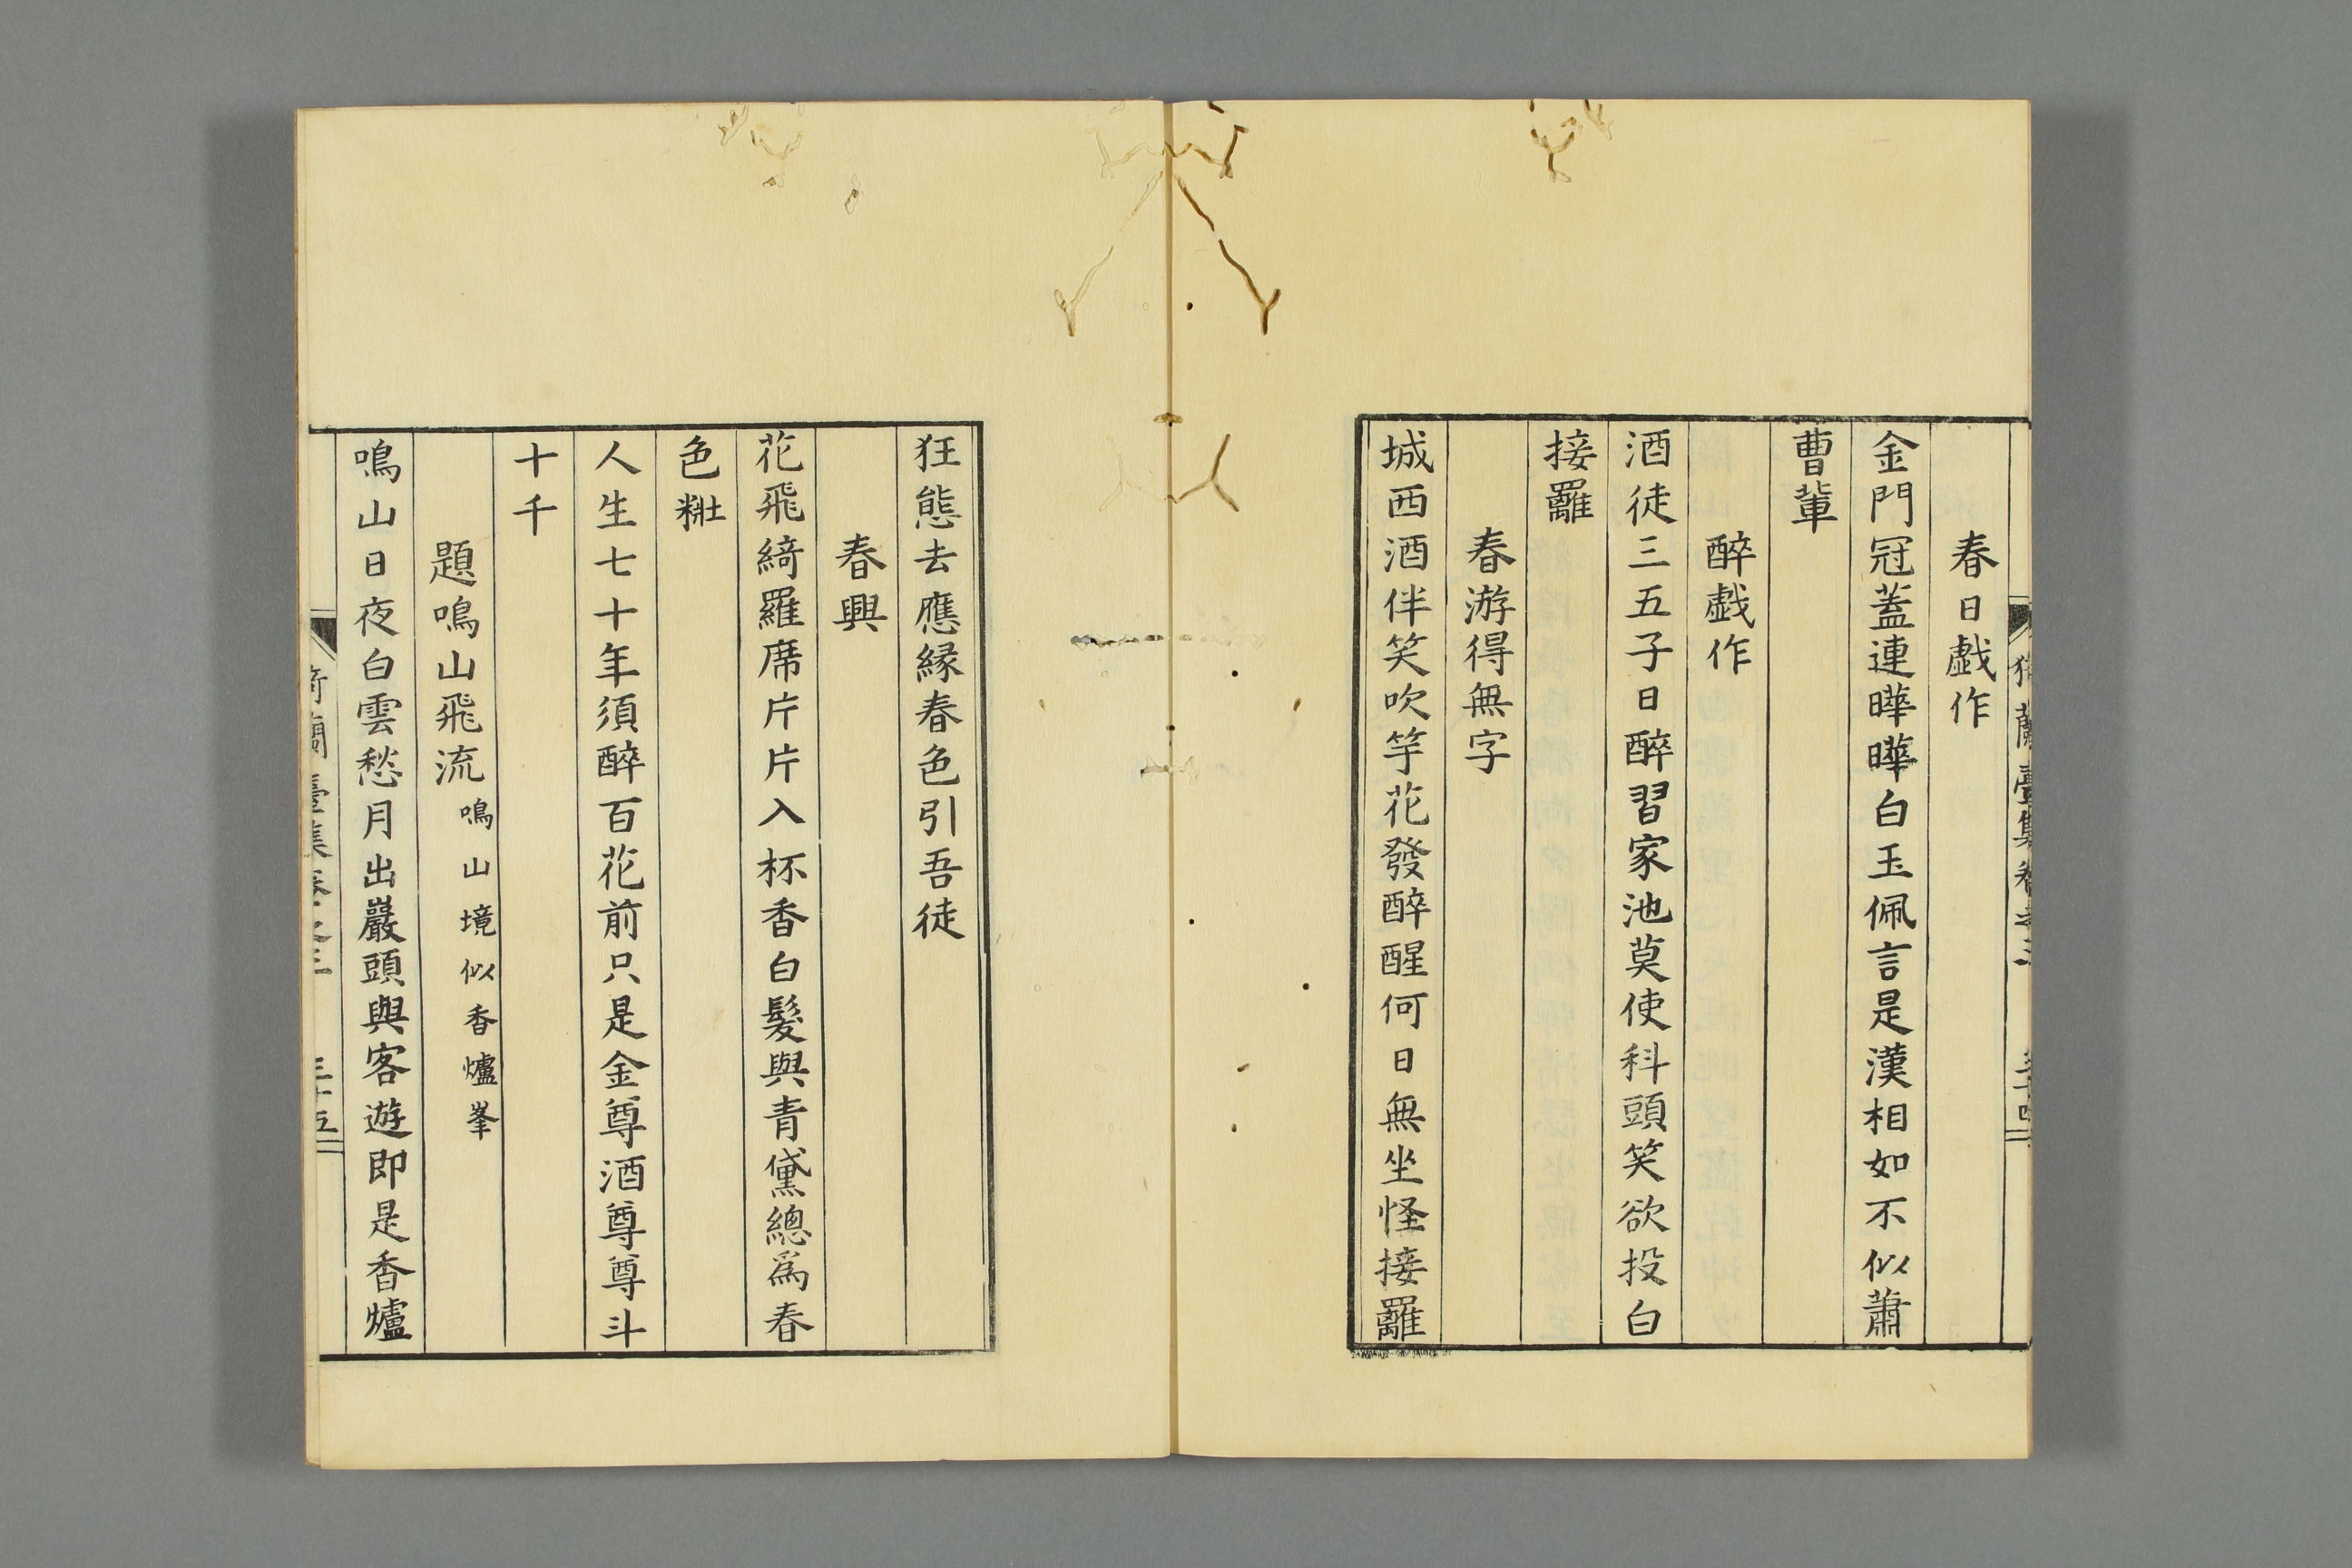 春日戯作
金門冠蓋連曄曄白玉佩言是漢相如不似蕭
曹輩
醉戯作
酒徒三五子日醉習家池莫使科頭笑欲投白
接䍦
春游得無字
城西酒伴笑吹竽花發醉醒何日無坐怪接䍦
狂態去應緣春色引吾徒
春興
花飛綺羅席片片入杯香白髮與青黛總爲春
色粧
人生七十年須醉百花前只是金尊酒尊尊斗
十千
題鳴山飛流 鳴山境似香爐峯
鳴山日夜白雲愁月出巖頭與客遊即是香爐